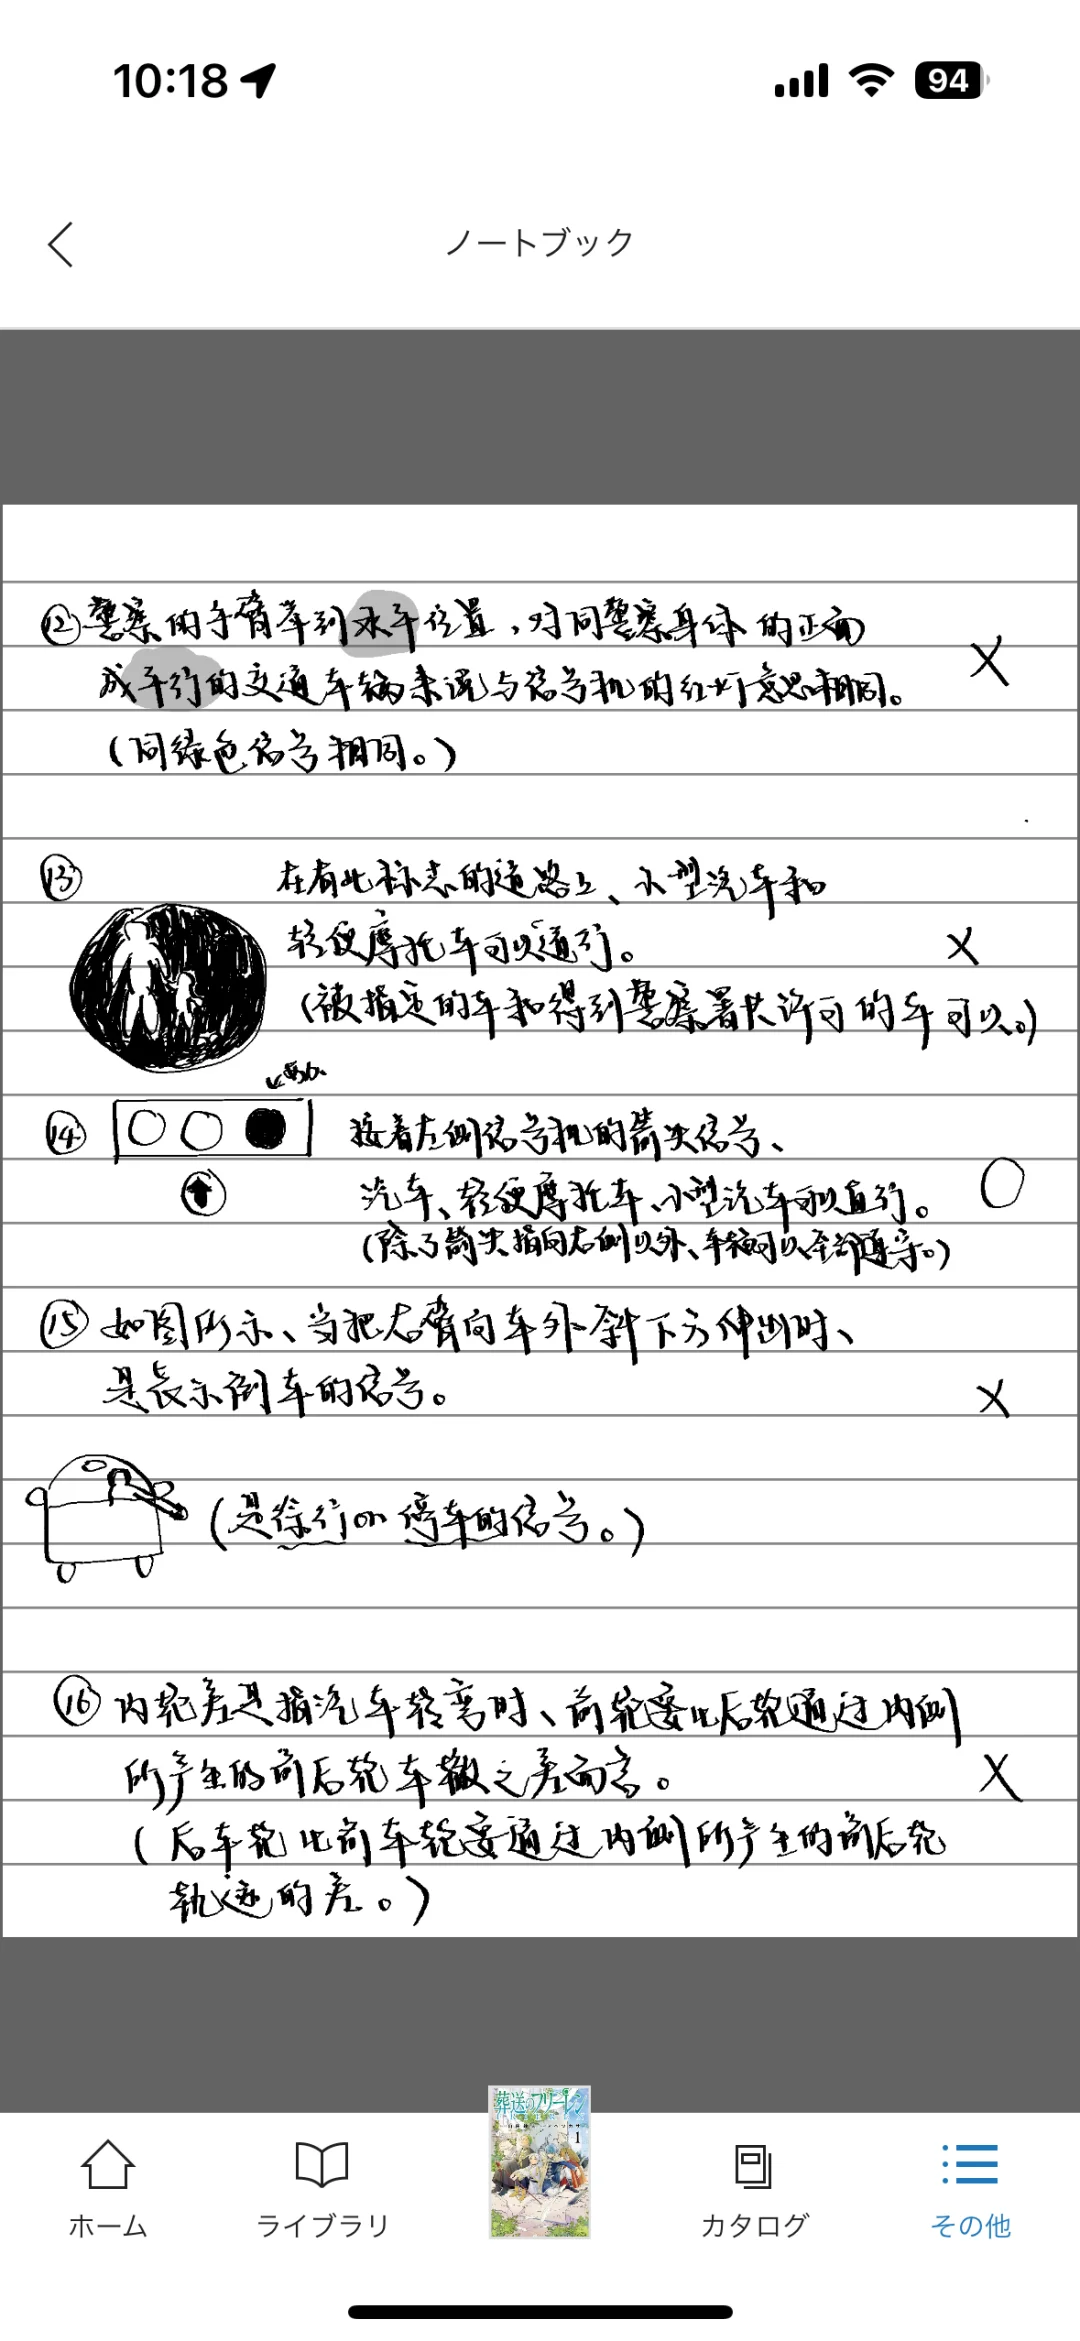 10:18
94
ノートブック
⑫警察的手臂举到水平位置，对同警察身体的正面
成平行的交通车辆来说与信号机的红灯意思相同。
（同绿色信号相同。）
⑬
在有此标志的道路上、小型汽车和
轻便摩托车可以通行。
（被指定的车和得到警察署长许可的车可以。）
⑭
接着左侧信号机的箭头信号、
汽车、轻便摩托车、小型汽车可以直行。
（除了箭头指向右侧以外、车辆可以全部通行。）
⑮如图所示、当把右臂向车外斜下方伸出时、
是表示倒车的信号。
（是徐行or停车的信号。）
⑯内轮差是指汽车转弯时、前轮要比后轮通过内侧
所产生的前后轮车辙之差而言。
（后车轮比前车轮要通过内侧所产生的前后轮
轨迹的差。）
葬送のフリーレン
1
ホーム
ライブラリ
カタログ
その他